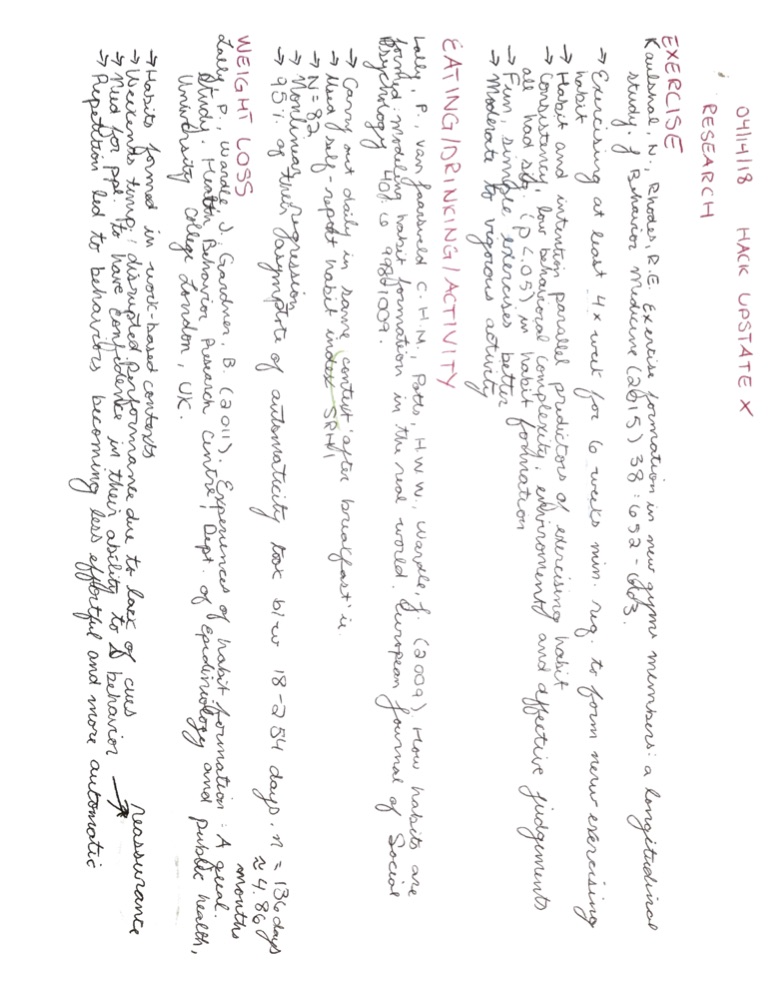 04/14/18 HACK UPSTATE X
RESEARCH
EXERCISE
Kaushal, N., Rhodes, R.E. Exercise formation in new gym members: a longitudinal
study. J Behavior Medicine (2015) 38:652-663.
→ Exercising at least 4x week for 6 weeks min. req. to form new exercising
habit
→ Habit and intention parallel predictors of exercising habit
→ Consistancy, low behavioral complexity, environment, and affective judgements
all had sig. (p<.05) in habit formation
→ Fun, simple exercises better
→ Moderate to vigorous activity
EATING/DRINKING/ACTIVITY
Lally, P., van Jaarsveld C.H.M., Potts, H.W.W., Wardle, J. (2009). How habits are
formed: Modeling habit formation in the real world. European Journal of Social
Psychology 40: 998-1009.
→ Carry out daily in same context 'after breakfast' ie.
→ Used self-report habit index SRHI
→ N=82
→ Nonlinear regression
→ 95% of their asymptote of automaticity took b/w 18-254 days. n = 136 days
≈ 4.86
months
WEIGHT LOSS
Lally P., Wardle J, Gardner, B. (2011). Experiences of habit formation: A qual.
Study. Health Behavior Research Centre, Dept. of Epidimiology and public health,
University College London, UK.
→ Habits formed in work-based contexts
→ Weekends temp. disrupted performance due to lack of cues
→ Need for ppl. to have confidence in their ability to Δ behavior → reassurance
→ Repetition led to behaviors becoming less effortful and more automatic